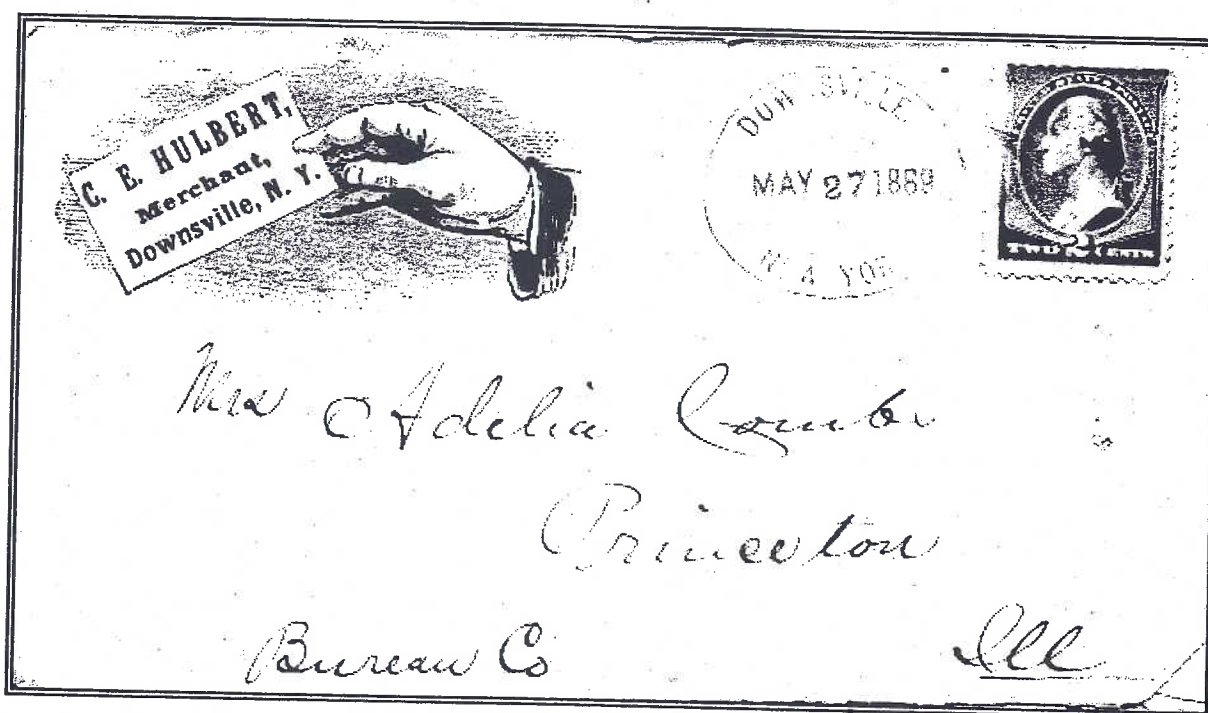 C. E. HULBERT,
Merchant,
Downsville, N. Y.
MAY 27 1889
TWO 2 CENTS
Mrs Adelia Combs
Princeton
Bureau Co
Ill